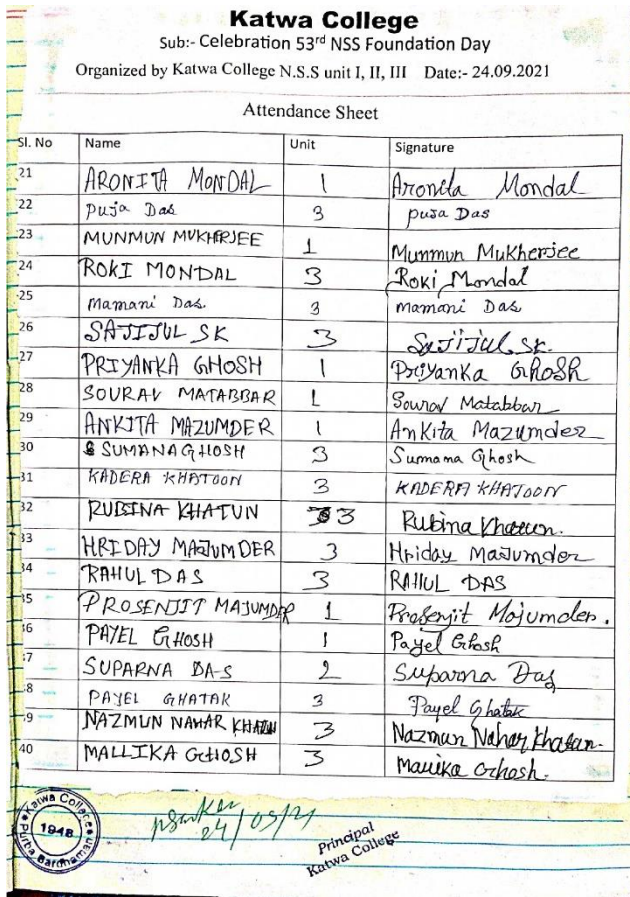 Katwa College
Sub:- Celebration 53rd NSS Foundation Day
Organized by Katwa College N.S.S unit I, II, III Date:- 24.09.2021
Attendance Sheet
Sl. No Name Unit Signature
21 ARONITA MONDAL 1 Aronita Mondal
22 Puja Das 3 Puja Das
23 MUNMUN MUKHERJEE 1 Munmun Mukherjee
24 ROKI MONDAL 3 Roki Mondal
25 Mamani Das. 3 Mamani Das
26 SAJIJUL SK 3 Sajijul SK.
27 PRIYANKA GHOSH 1 Priyanka Ghosh
28 SOURAV MATABBAR 1 Sourav Matabbar
29 ANKITA MAZUMDER 1 Ankita Mazumder
30 SUMANA GHOSH 3 Sumana Ghosh
31 KADERA KHATOON 3 KADERA KHATOON
32 RUBINA KHATUN 3 Rubina Khatun.
33 HRIDAY MAJUMDER 3 Hriday Majumder
34 RAHUL DAS 3 RAHUL DAS
35 PROSENJIT MAJUMDER 1 Prosenjit Majumder.
36 PAYEL GHOSH 1 Payel Ghosh
37 SUPARNA DAS 2 Suparna Das
38 PAYEL GHATAK 3 Payel Ghatak
39 NAZMUN NAHAR KHATUN 3 Nazmun Nahar Khatun.
40 MALLIKA GHOSH 3 Mallika Ghosh.
Katwa College
1948
Purba Bardhaman
24/09/21
Principal
Katwa College